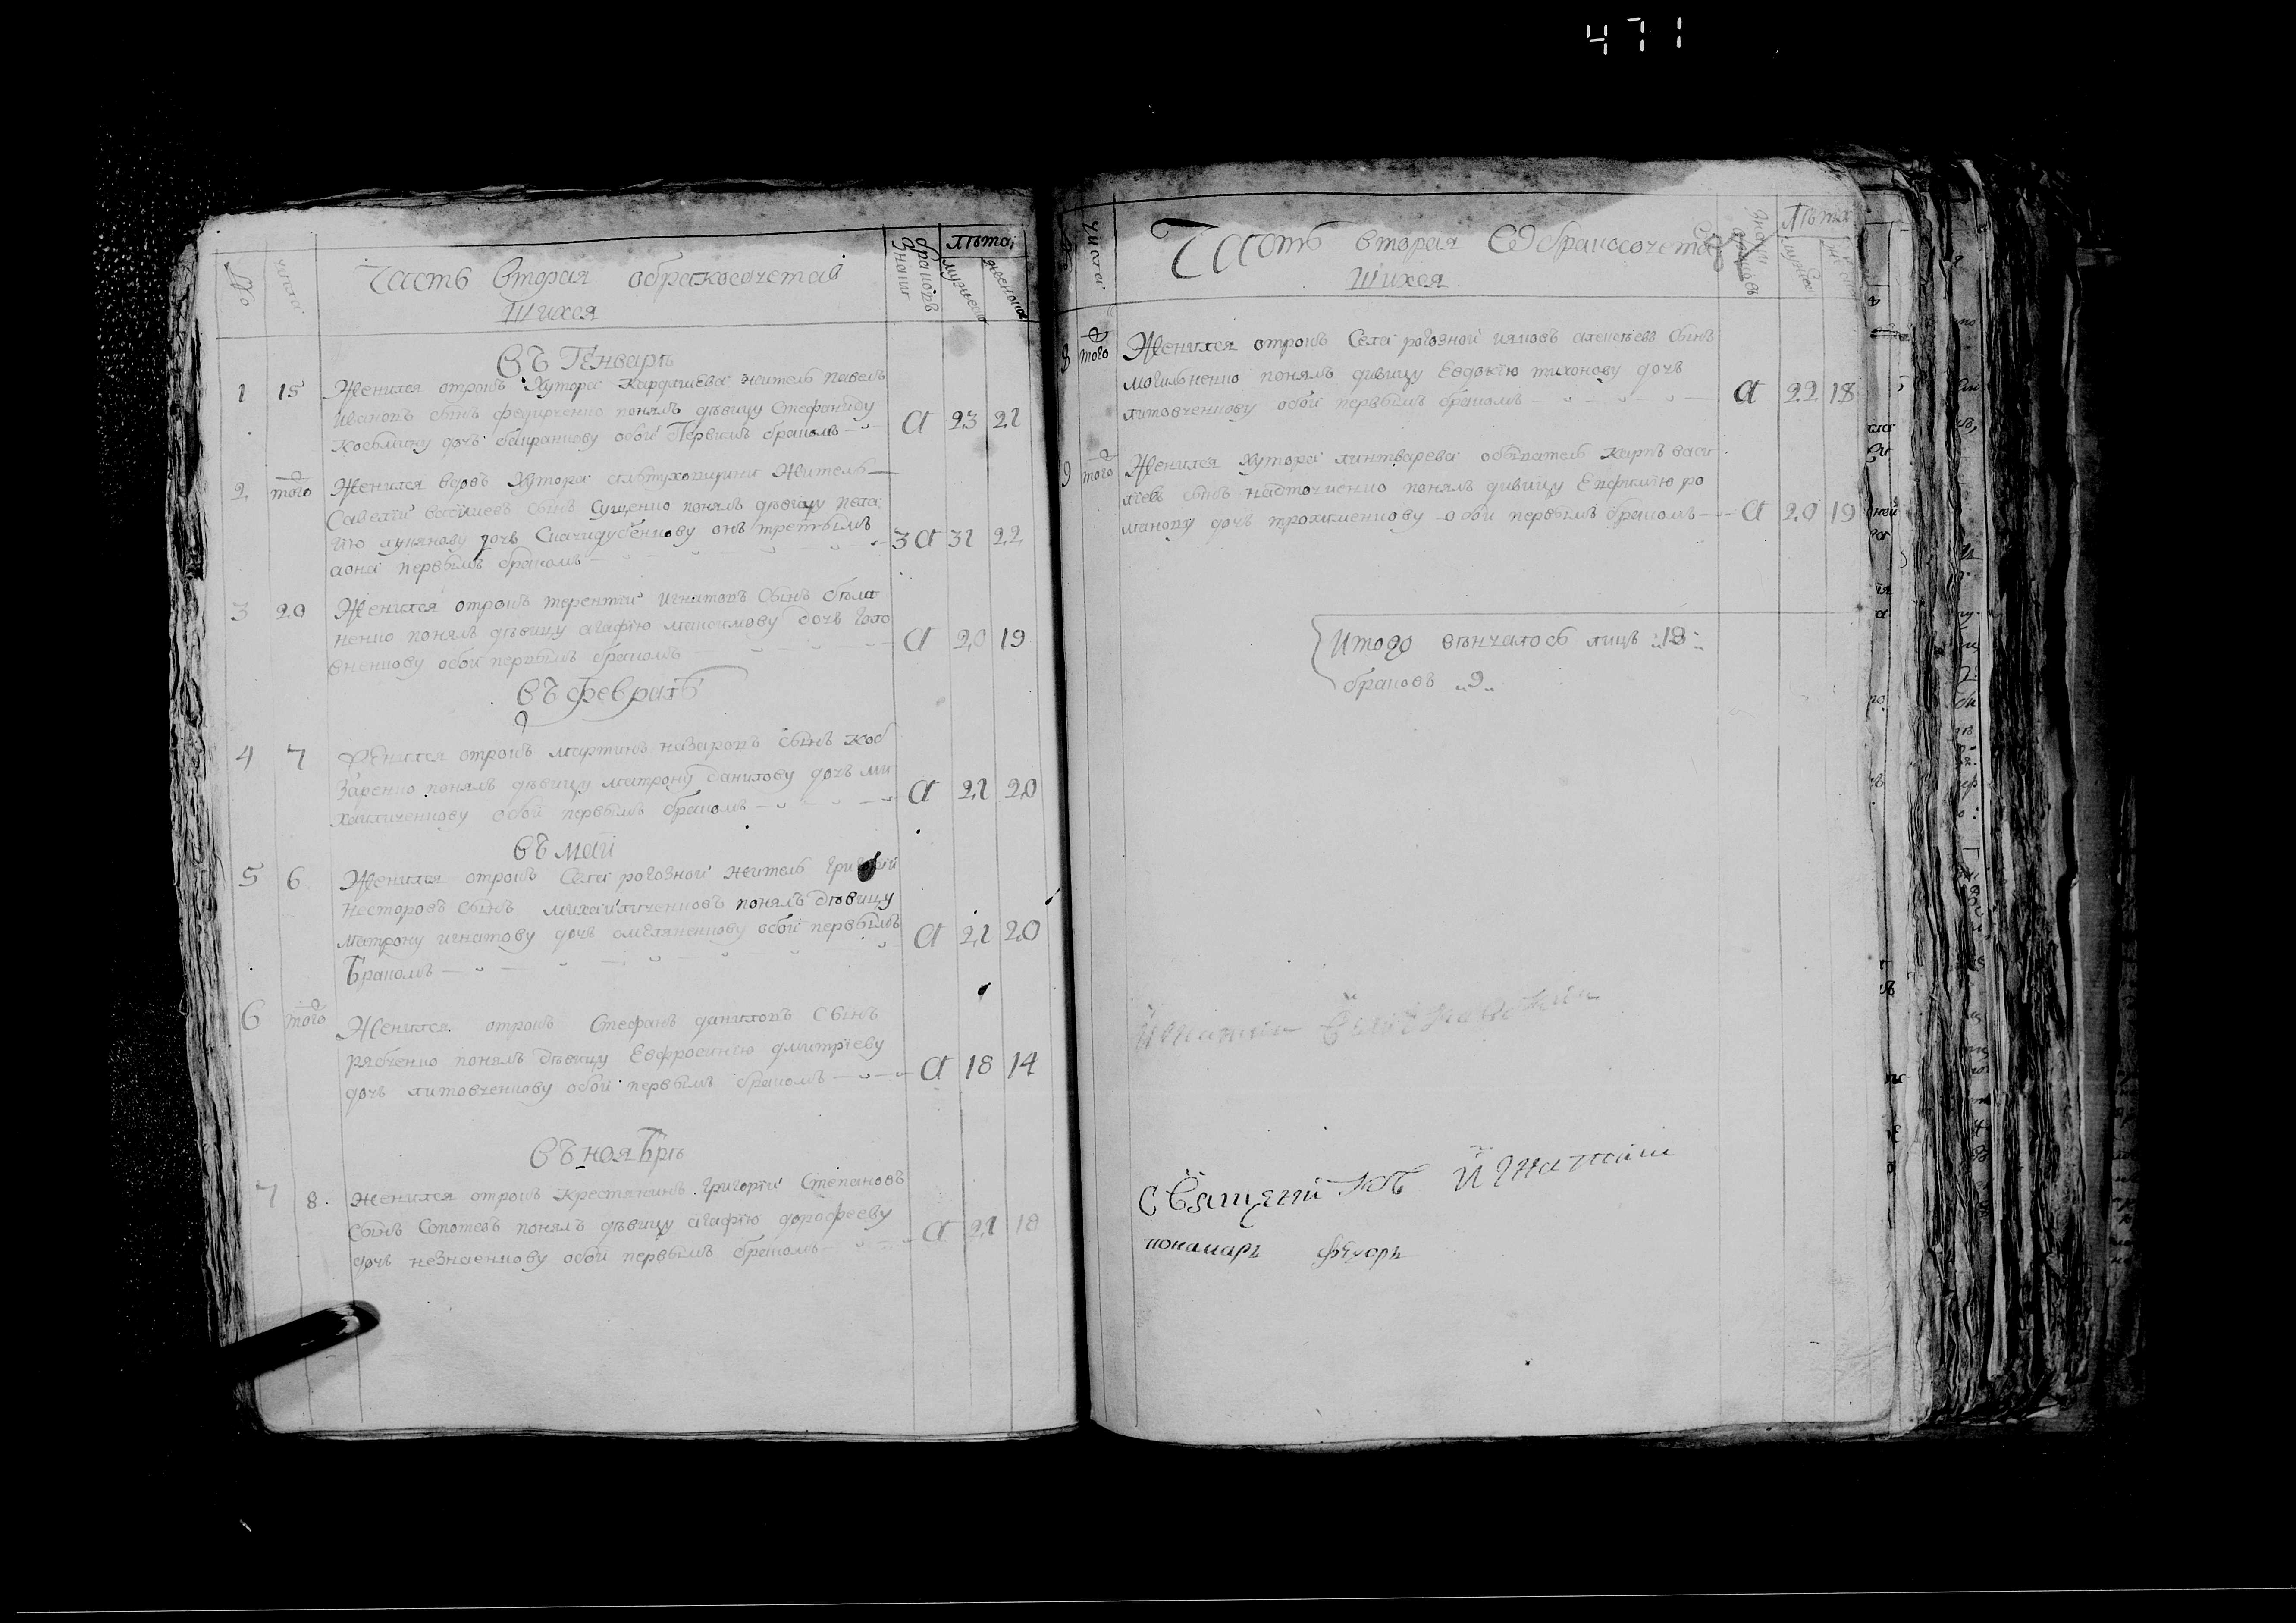 471
№
числа
Часть вторая обракосочетав
шихся
Знаки
браковъ
лѣта
мужеска
женска
Въ Генварѣ
1 15 Женился отрокъ Хутора Кардашева житель павелъ
Ивановъ сынъ федирченко понялъ дѣвицу Стефаниду
Косьмину дочь обои Первымъ бракомъ а 23 21
2 того Женился вдовъ Хутора житель
Савелій сынъ Сущенко понялъ дѣвицу пела
ию лукянову дочь онъ третьимъ 3 а 31 22
аона первымъ бракомъ
3 20 Женился отрокъ терентій игнатовъ Сынъ бѣла
ненко понялъ дѣвицу агафію максимову дочь голо
вненкову обои первымъ бракомъ а 20 19
Въ февралѣ
4 7 Женился отрокъ мартинъ назаровъ Сынъ коб
заренко понялъ дѣвицу матрону данилову дочь ми
хайличенкову обои первымъ бракомъ а 21 20
Въ маіи
5 6 Женился отрокъ Села рогозной житель григорій
несторовъ Сынъ михайличенковъ понялъ дѣвицу
матрону игнатову дочь омеляненкову обои первымъ а 21 20
Бракомъ
6 того Женился отрокъ Стефанъ даниловъ Сынъ
рябченко понялъ дѣвицу Евфросинію дмитріеву
дочь литовченкову обои первымъ бракомъ а 18 14
Въ ноябрѣ
7 8 женился отрокъ крестянинъ григорій Степановъ
Сынъ Сопотевъ понялъ дѣвицу агафію дорофееву
дочь незнаенкову обои первымъ бракомъ а 21 18
числа
Часть вторая Обракосочетав
шихся
Знаки браковъ
Лѣта
мужес
8 того Женился отрокъ Села рогозной яковъ алексѣевъ Сынъ
могильненко понялъ дивицу Евдокію тихонову дочь
литовченкову обои первымъ бракомъ а 22 18
9 того Женился Хутора линтварева обыватель карпъ васи
лѣевъ сынъ надточиенко понялъ дивицу Евфимію ро
манову дочь трохименкову обои первымъ бракомъ а 20 19
Итого вѣнчалось лицъ 18
браковъ 9
Священникъ Игнатіи
понамаръ фєдоръ